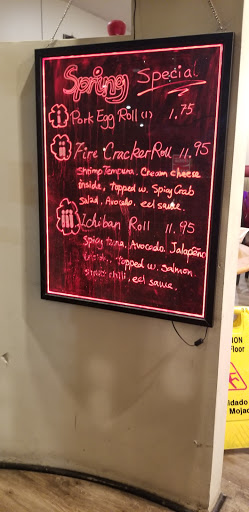 Spring Special
i Pork Egg Roll (1) 1.75
ii Fire Cracker Roll 11.95
Shrimp Tempura, Cream cheese
inside, topped w. Spicy Crab
Salad, Avocado, eel sauce.
iii Ichiban Roll 11.95
Spicy tuna, Avocado, Jalapeño
topped w. Salmon
chili, eel sauce.
ION
Floor
idado
Mojad